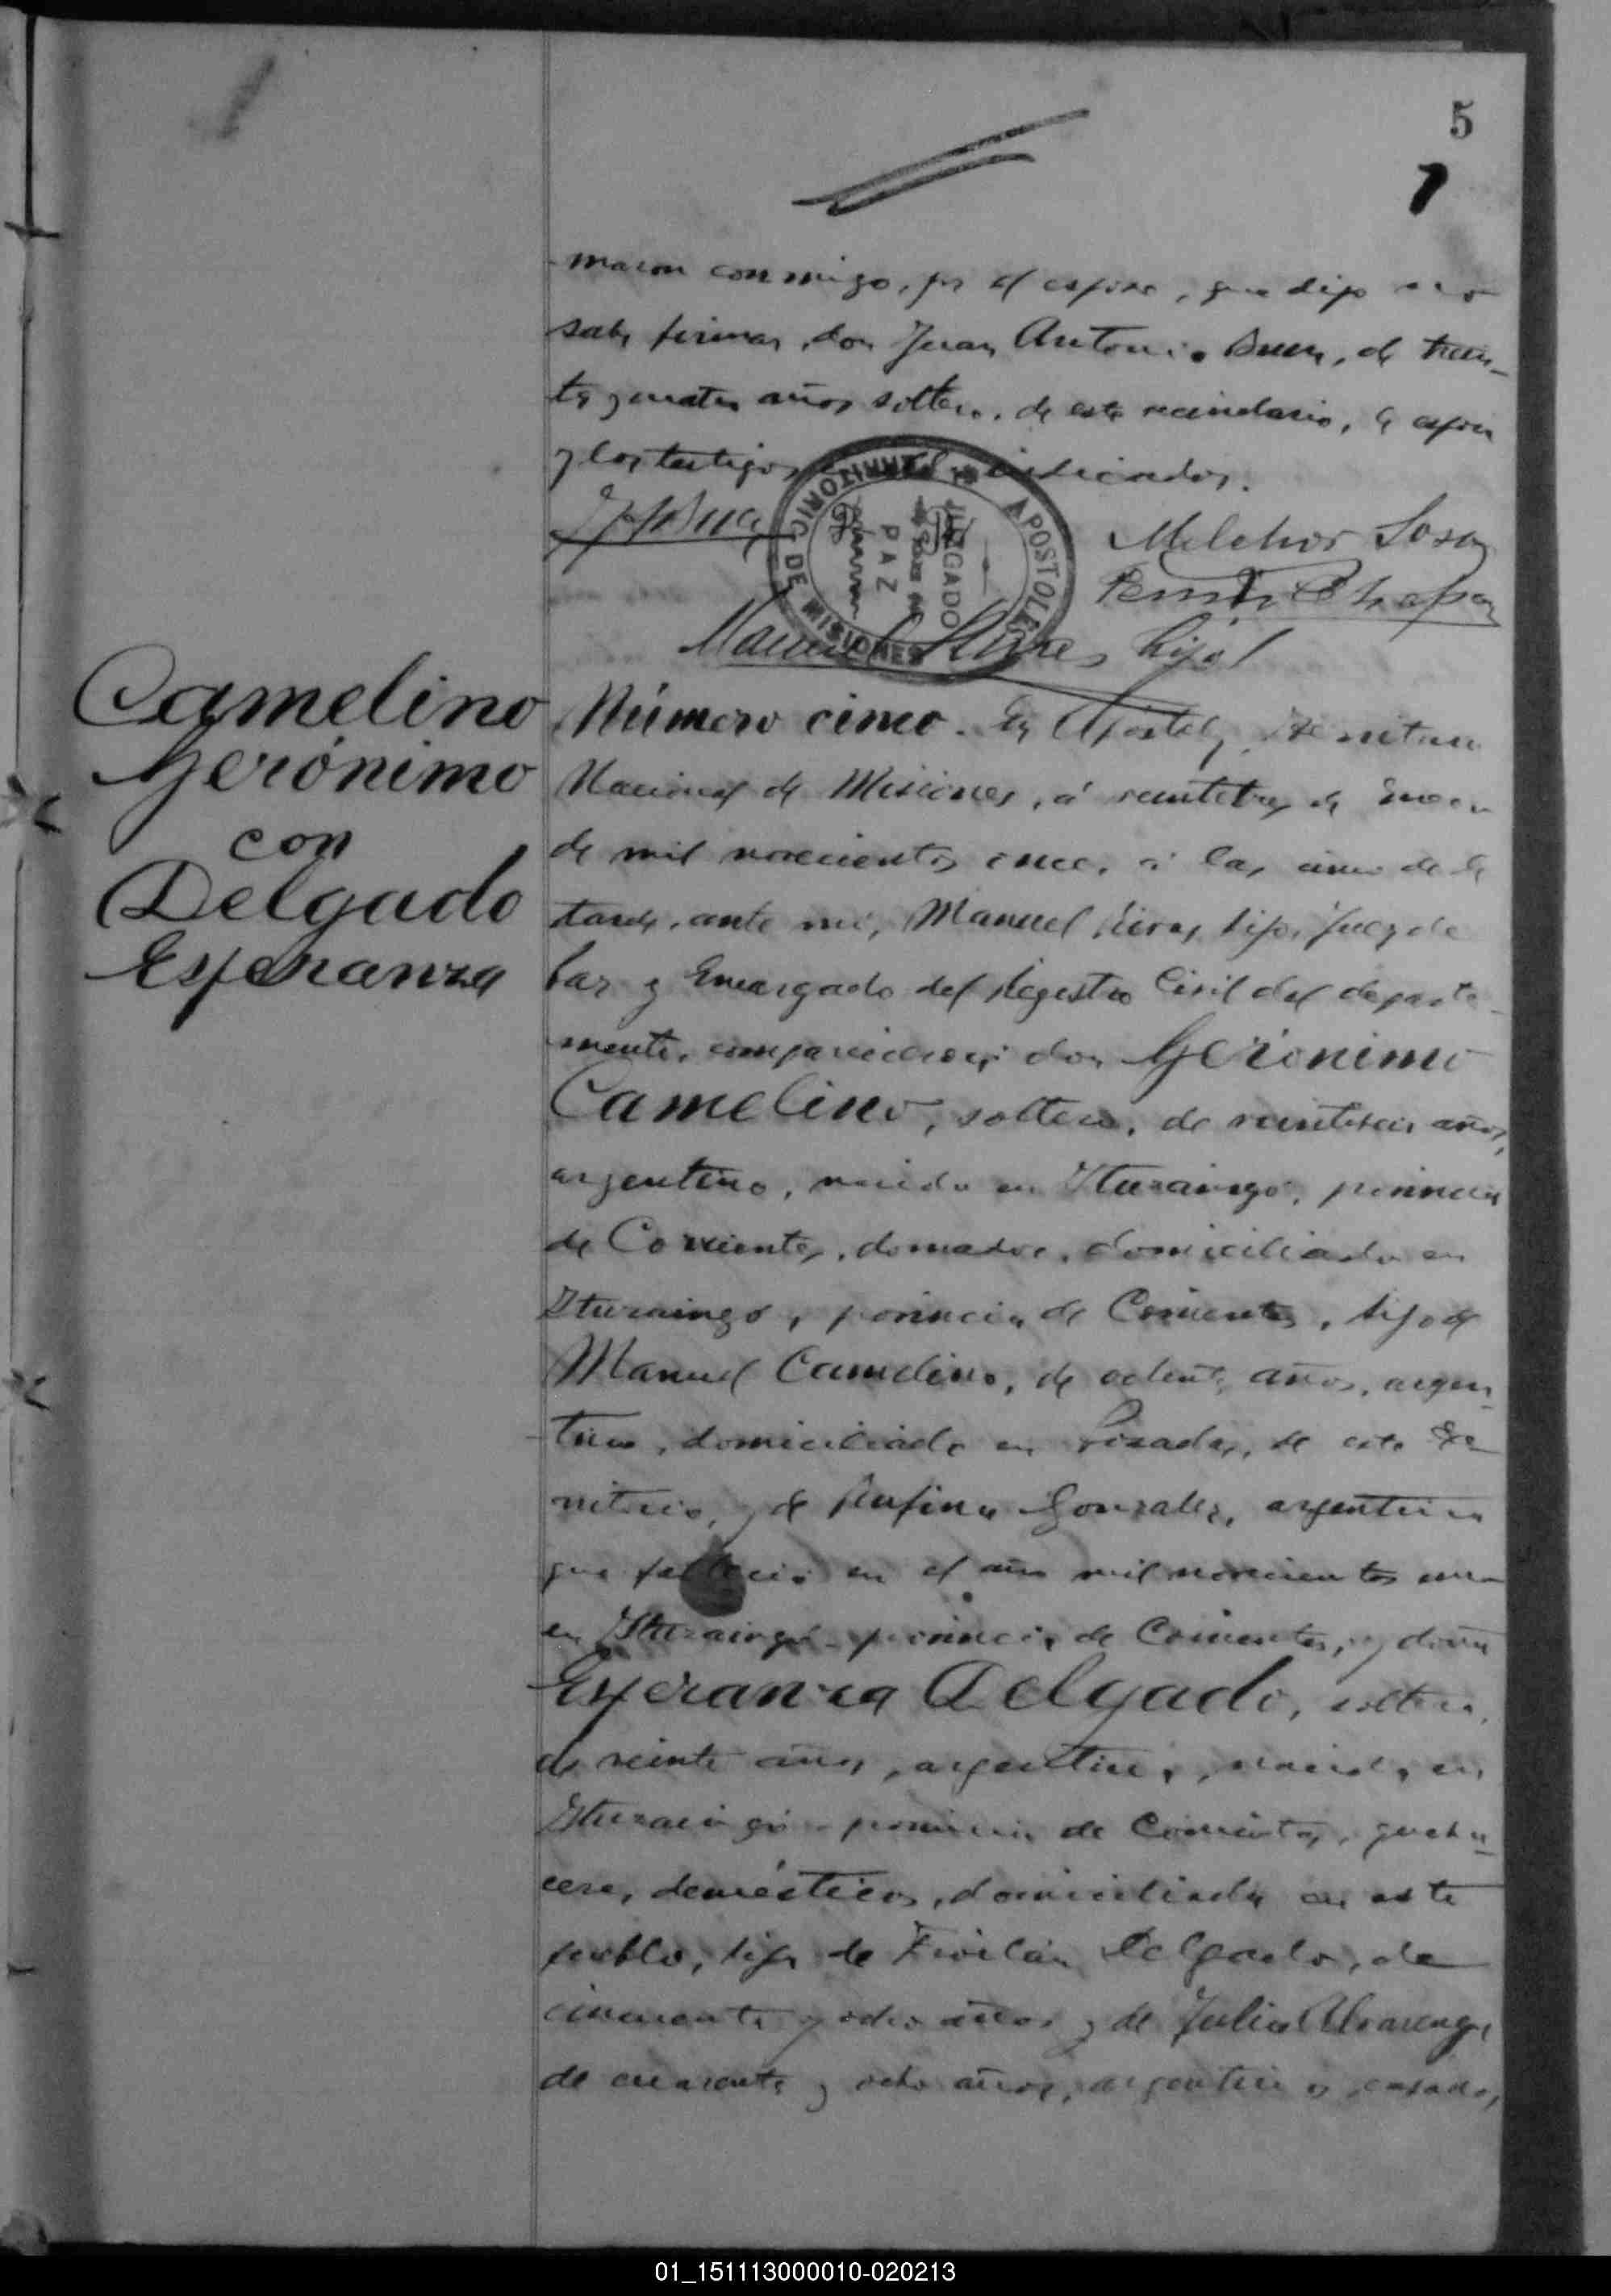 5
7
maron conmigo, por el esposo, que dijo no
sabe firmar, don Juan Antonio de trein-
ta y cuatro años soltero, de este vecindario, la esposa
y los testigos indicados.
Melchor Sosa
Manuel hijo
JUZGADO
PAZ
APOSTOLES
TERRITORIO DE MISIONES
Camelino
Gerónimo
con
Delgado
Esperanza
Número cinco. En Apóstoles, Territorio
Nacional de Misiones, á veintitres de Enero
de mil novecientos once, á las cinco de la
tarde, ante mí, Manuel hijo, Juez de
Paz y Encargado del Registro Civil del departa-
mento, comparecieron don Gerónimo
Camelino, soltero, de veintiseis años,
argentino, nacido en Ituzaingó, provincia
de Corrientes, domador, domiciliado en
Ituzaingó, provincia de Corrientes, hijo de
Manuel Camelino, de ochenta años, argen-
tino, domiciliado en Posadas, de este Te-
rritorio, y de Rufina Gonzalez, argentina
que falleció en el año mil novecientos
en Ituzaingó provincia de Corrientes, y doña
Esperanza Delgado, soltera,
de veinte años, argentina, nacida en
Ituzaingó provincia de Corrientes, queha-
ceres domésticos, domiciliada en este
pueblo, hija de Froilán Delgado, de
cincuenta y ocho años y de Julia Alvarenga
de cuarenta y ocho años, argentinos, casados,
01_151113000010-020213